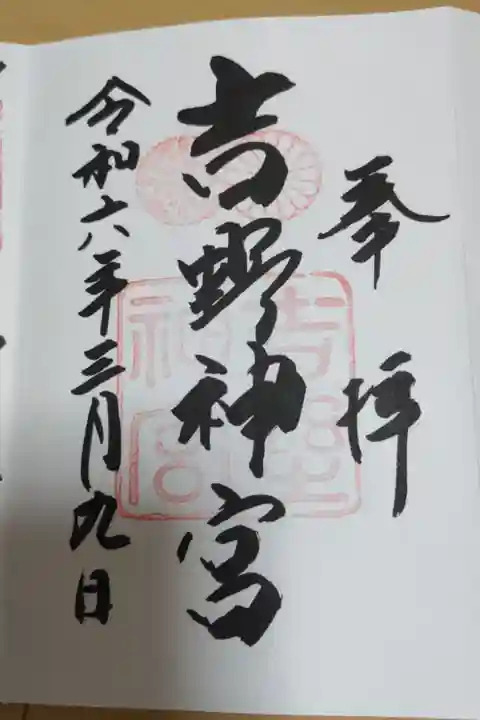 奉拝
吉野神宮
令和六年三月九日
吉野
神宮